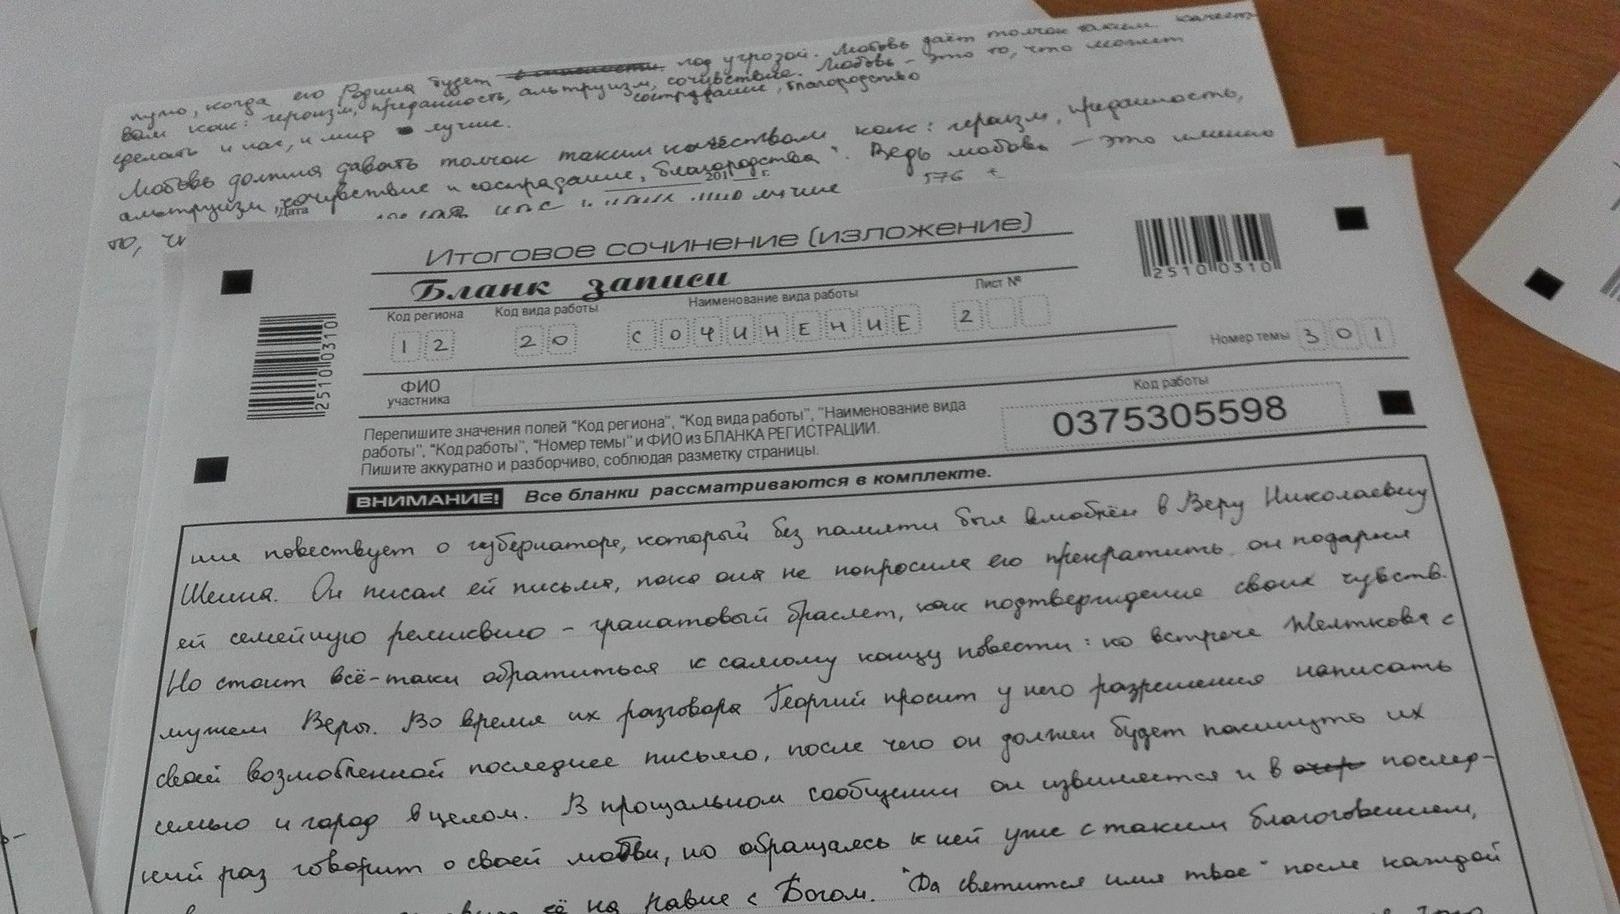 нужно, когда его Родина будет в опасности под угрозой. Любовь даёт толчок таким качест-
вам как: героизм, преданность, альтруизм, сочувствие. Любовь – это то, что может
сострадание, благородство
сделать и нас, и мир лучше.
Любовь должна давать толчок таким качествам как: героизм, преданность,
альтруизм, сочувствие и сострадание, благородства". Ведь любовь – это именно
то, лучше
Дата 201 г.
576
Итоговое сочинение (изложение)
Бланк записи
Код региона Код вида работы Наименование вида работы Лист №
12 20 СОЧИНЕНИЕ 2
Номер темы 301
ФИО участника
Код работы
0375305598
2510 0310
2510 0310
Перепишите значения полей "Код региона", "Код вида работы", "Наименование вида
работы", "Код работы", "Номер темы" и ФИО из БЛАНКА РЕГИСТРАЦИИ.
Пишите аккуратно и разборчиво, соблюдая разметку страницы.
ВНИМАНИЕ! Все бланки рассматриваются в комплекте.
ние повествует о губернаторе, который без памяти был влюблён в Веру Николаевну
Шеина. Он писал ей письма, пока она не попросила его прекратить, он подарил
ей семейную реликвию – гранатовый браслет, как подтверждение своих чувств.
Но стоит всё-таки обратиться к самому концу повести: ко встрече Желткова с
мужем Веры. Во время их разговора Георгий просит у него разрешения написать
своей возлюбленной последнее письмо, после чего он должен будет покинуть их
семью и город в целом. В прощальном сообщении он извиняется и в послед-
ний раз говорит о своей любви, но обращаясь к ней уже с таким благоговением,
её на равне с Богом. "Да святится имя твое" после каждой